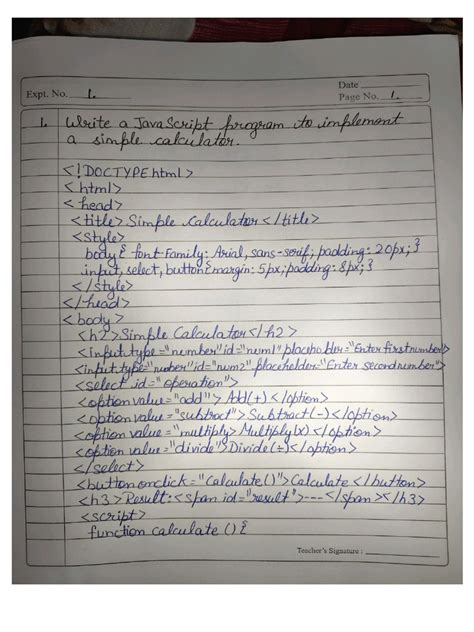 Expt. No. 1.
Date
Page No. 1.
1. Write a JavaScript program to implement
a simple calculator.
<!DOCTYPE html>
<html>
<head>
<title>Simple Calculator</title>
<style>
body{ font-Family: Arial, sans-serif; padding: 20px; }
input, select, button{margin: 5px; padding: 8px; }
</style>
</head>
<body>
<h2>Simple Calculator</h2>
<input type="number" id="num1" placeholder="Enter first number">
<input type="number" id="num2" placeholder="Enter second number">
<select id="operation">
<option value="add">Add(+)</option>
<option value="subtract">Subtract(-)</option>
<option value="multiply>Multiply(x)</option>
<option value="divide">Divide(÷)</option>
</select>
<button onclick="Calculate()">Calculate</button>
<h3>Result:<span id="result">---</span></h3>
<script>
function calculate (){
Teacher's Signature :